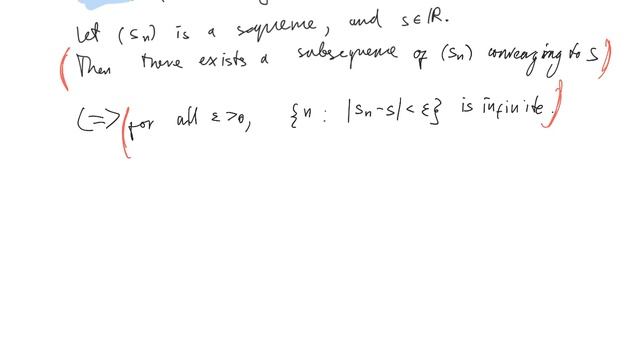 Let (sn) is a sequence, and s∈ℝ.
(Then there exists a subsequence of (sn) converging to s)
<=> (for all ε>0, {n : |sn-s|<ε} is infinite.)